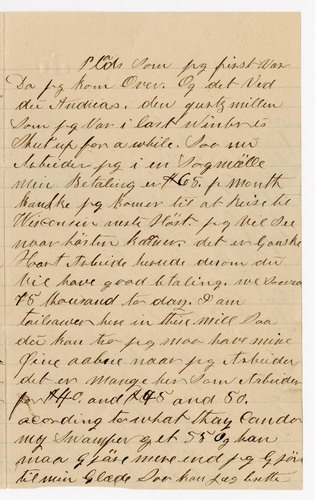 Plads Som jeg first Var
Da jeg kom Over. Og det Ved
du Andreas. den qurtz millen
Som jeg Var i last Winter is
Shut up for a while. Saa nu
Arbeider jeg i en Sagmölle
min Betaling er $65. pr Month
kandke jeg komer til at Reise til
Wisconsin neste Höst. jeg Vil See
naar hösten kommer. det er Ganske
Hart Arbeide herude dersom du
Vil have good betaling. we Sawed
75 thousand to day. I am
tailsawer here in this mill Saa
du kan tro jeg maa have mine
Öine aabne naar jeg Arbeider
det er Mange her Som Arbeider
for $40. and $45 and 50.
acording to what thay Can do
my Swamper get 55 Og han
maa Gjöre mere end jeg Gjör
til min Glæde Saa kan jeg